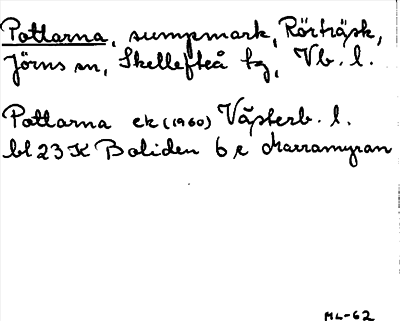 Pottarna, sumpmark, Rörträsk,
Jörns sn, Skellefteå kg, Vb. l.
Pottarna ek (1960) Västerb. l.
bl 23 K Boliden 6 e Harramyran
ML-62